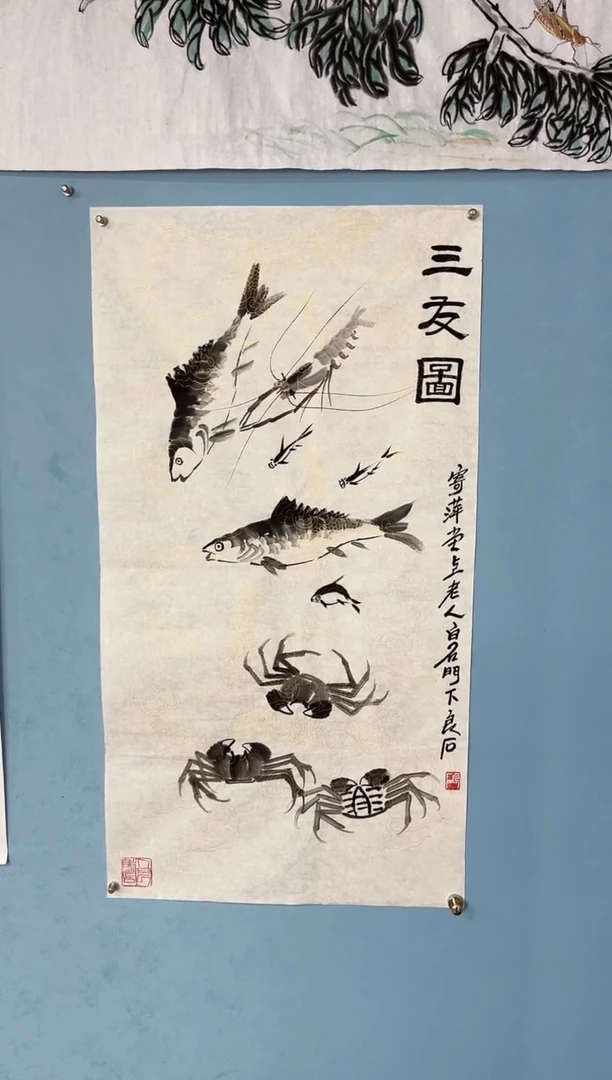 三友圖
寄萍堂上老人白石門下良石